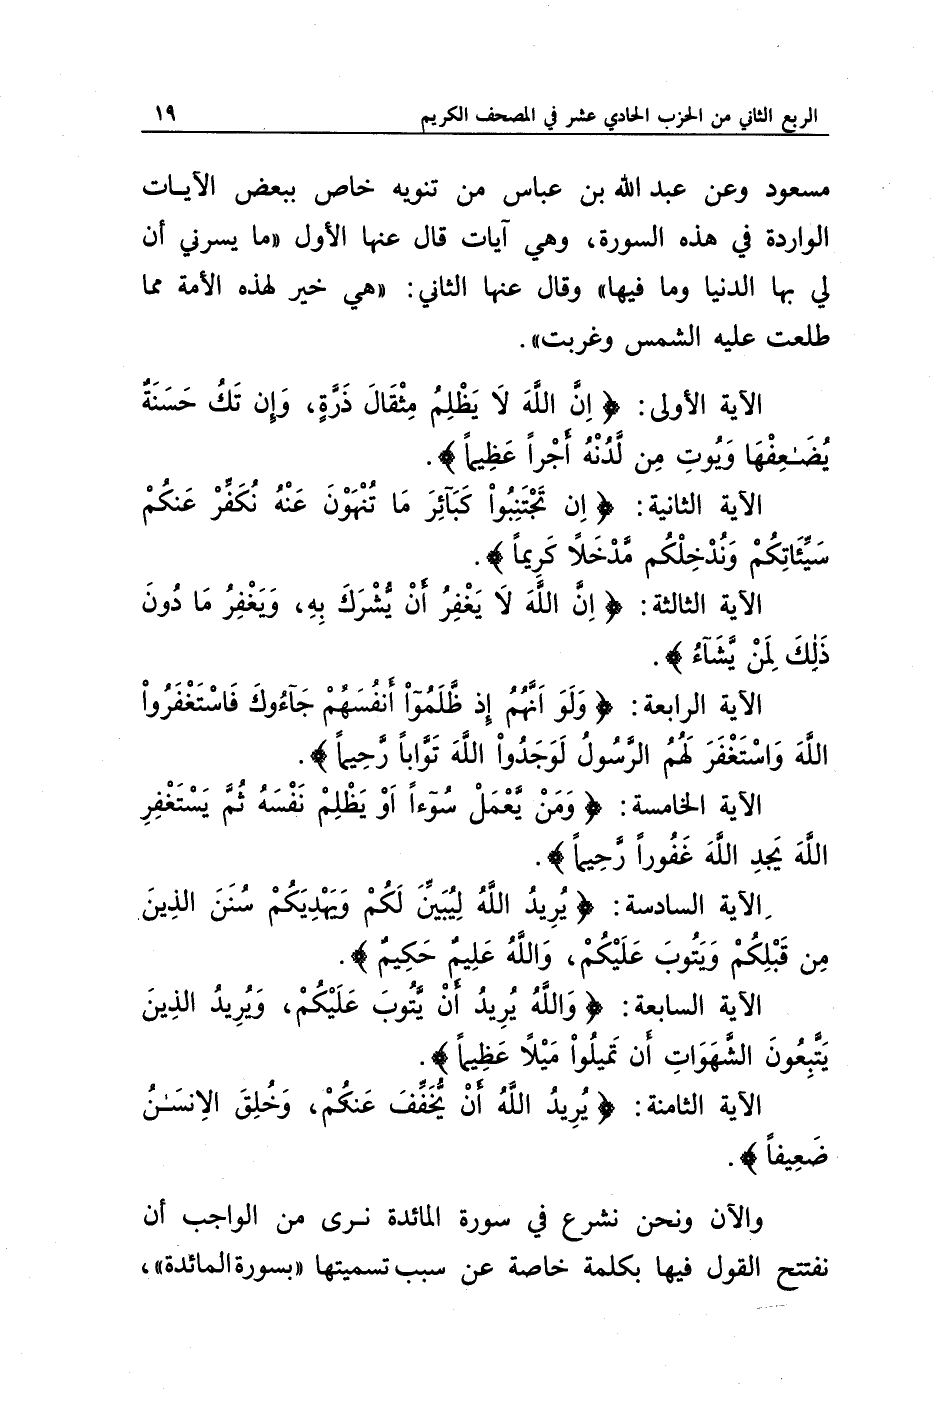 الربع الثاني من الحزب الحادي عشر في المصحف الكريم ١٩
مسعود وعن عبد الله بن عباس من تنويه خاص ببعض الآيات
الواردة في هذه السورة، وهي آيات قال عنها الأول «ما يسرني أن
لي بها الدنيا وما فيها» وقال عنها الثاني: «هي خير لهذه الأمة مما
طلعت عليه الشمس وغربت».
الآية الأولى: ﴿ إِنَّ اللَّهَ لَا يَظْلِمُ مِثْقَالَ ذَرَّةٍ، وَإِن تَكُ حَسَنَةٌ
يُضَـٰعِفْهَا وَيُوتِ مِن لَّدُنْهُ أَجْراً عَظِيماً ﴾.
الآية الثانية: ﴿ إِن تَجْتَنِبُواْ كَبَآئِرَ مَا تُنْهَوْنَ عَنْهُ نُكَفِّرْ عَنكُمْ
سَيِّئَاتِكُمْ وَنُدْخِلْكُم مَّدْخَلًا كَرِيماً ﴾.
الآية الثالثة: ﴿ إِنَّ اللَّهَ لَا يَغْفِرُ أَنْ يُّشْرَكَ بِهِ، وَيَغْفِرُ مَا دُونَ
ذَٰلِكَ لِمَنْ يَّشَآءُ ﴾.
الآية الرابعة: ﴿ وَلَوَ اَنَّهُمُ إِذ ظَّلَمُوٓاْ أَنفُسَهُمْ جَآءُوكَ فَاسْتَغْفَرُواْ
اللَّهَ وَاسْتَغْفَرَ لَهُمُ الرَّسُولُ لَوَجَدُواْ اللَّهَ تَوَّاباً رَّحِيماً ﴾.
الآية الخامسة: ﴿ وَمَنْ يَّعْمَلْ سُوٓءاً اَوْ يَظْلِمْ نَفْسَهُ ثُمَّ يَسْتَغْفِرِ
اللَّهَ يَجِدِ اللَّهَ غَفُوراً رَّحِيماً ﴾.
الآية السادسة: ﴿ يُرِيدُ اللَّهُ لِيُبَيِّنَ لَكُمْ وَيَهْدِيَكُمْ سُنَنَ الذِينَ
مِن قَبْلِكُمْ وَيَتُوبَ عَلَيْكُمْ، وَاللَّهُ عَلِيمٌ حَكِيمٌ ﴾.
الآية السابعة: ﴿ وَاللَّهُ يُرِيدُ أَنْ يَّتُوبَ عَلَيْكُمْ، وَيُرِيدُ الذِينَ
يَتَّبِعُونَ الشَّهَوَاتِ أَن تَمِيلُواْ مَيْلًا عَظِيماً ﴾.
الآية الثامنة: ﴿ يُرِيدُ اللَّهُ أَنْ يُّخَفِّفَ عَنكُمْ، وَخُلِقَ الاِنسَـٰنُ
ضَعِيفاً ﴾.
والآن ونحن نشرع في سورة المائدة نرى من الواجب أن
نفتتح القول فيها بكلمة خاصة عن سبب تسميتها «بسورة المائدة»،